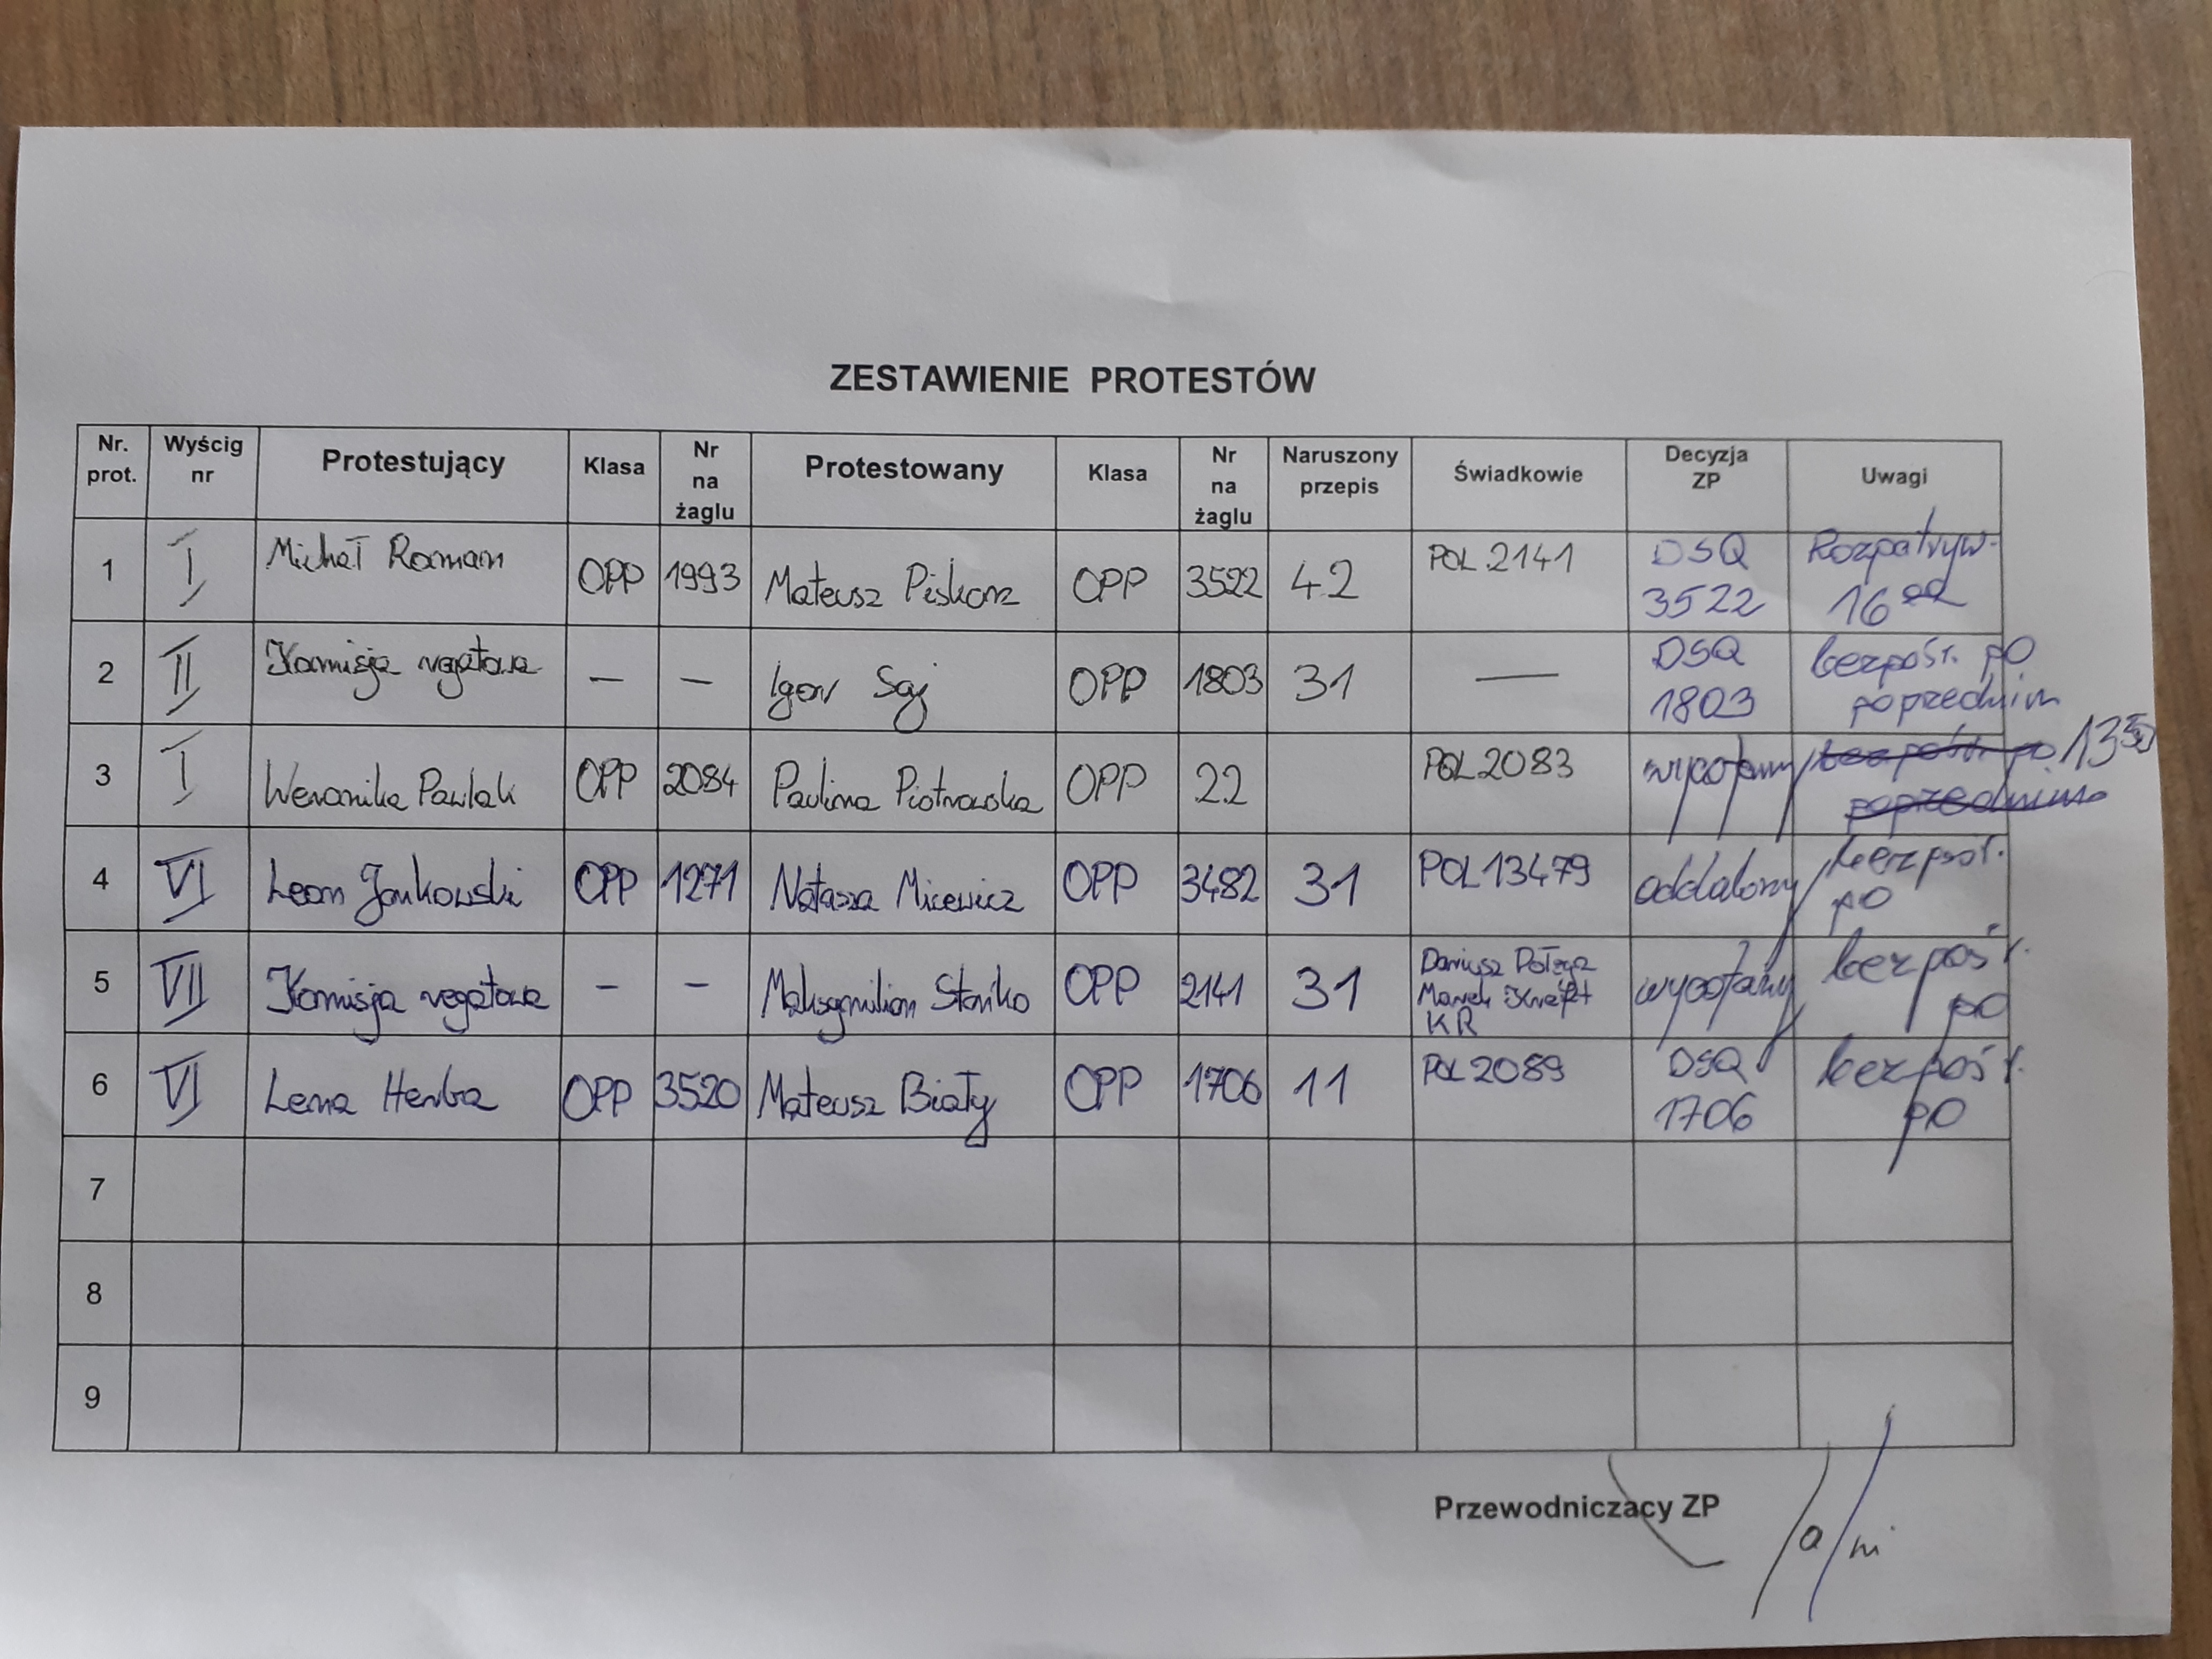 ZESTAWIENIE PROTESTÓW
Nr. prot. Wyścig nr Protestujący Klasa Nr na żaglu Protestowany Klasa Nr na żaglu Naruszony przepis Świadkowie Decyzja ZP Uwagi
1 I Michał Roman OPP 1993 Mateusz Piskorz OPP 3522 42 POL 2141 DSQ 3522 Rozpatryw. 16 00
2 II Komisja regatowa – – Igor Saj OPP 1803 31 — DSQ 1803 bezpośr. po poprzednim
3 I Weronika Pawlak OPP 2084 Paulina Piotrowska OPP 22 POL 2083 wycofany bezpośr. po poprzednim 13 50
4 VI Leon Jankowski OPP 1271 Natasza Micewicz OPP 3482 31 POL 13479 oddalony bezpośr. po
5 VII Komisja regatowa – – Maksymilian Stańko OPP 2141 31 Dariusz Marek KR wycofany bezpośr. po
6 VI Lena Herba OPP 3520 Mateusz Biały OPP 1706 11 POL 2089 DSQ 1706 bezpośr. po
7
8
9
Przewodniczacy ZP